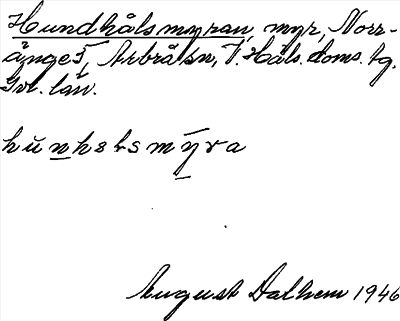 Hundhålsmyran, myr, Norr-
änge 5, Arbrå sn, V. Häls. doms. tg.
Gvl. län.
hŭnhsḷsmȳra
August Dalhem 1946